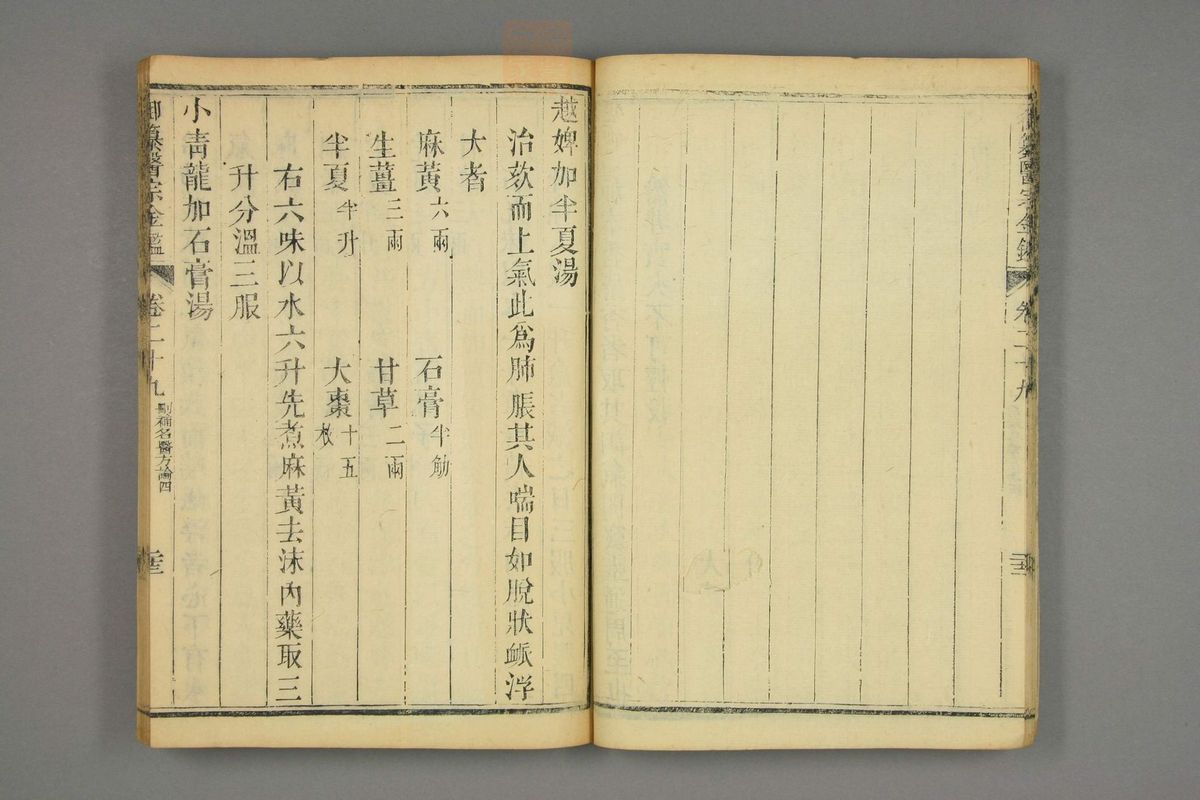 御纂醫宗金鑑 卷二十九
越婢加半夏湯
治欬而上氣此爲肺脹其人喘目如脫狀脈浮
大者
麻黃六兩 石膏半觔
生薑三兩 甘草二兩
半夏半升 大棗十五枚
右六味以水六升先煮麻黃去沫內藥取三
升分溫三服
小靑龍加石膏湯
御纂醫宗金鑑 卷二十九 刪補名醫方論四